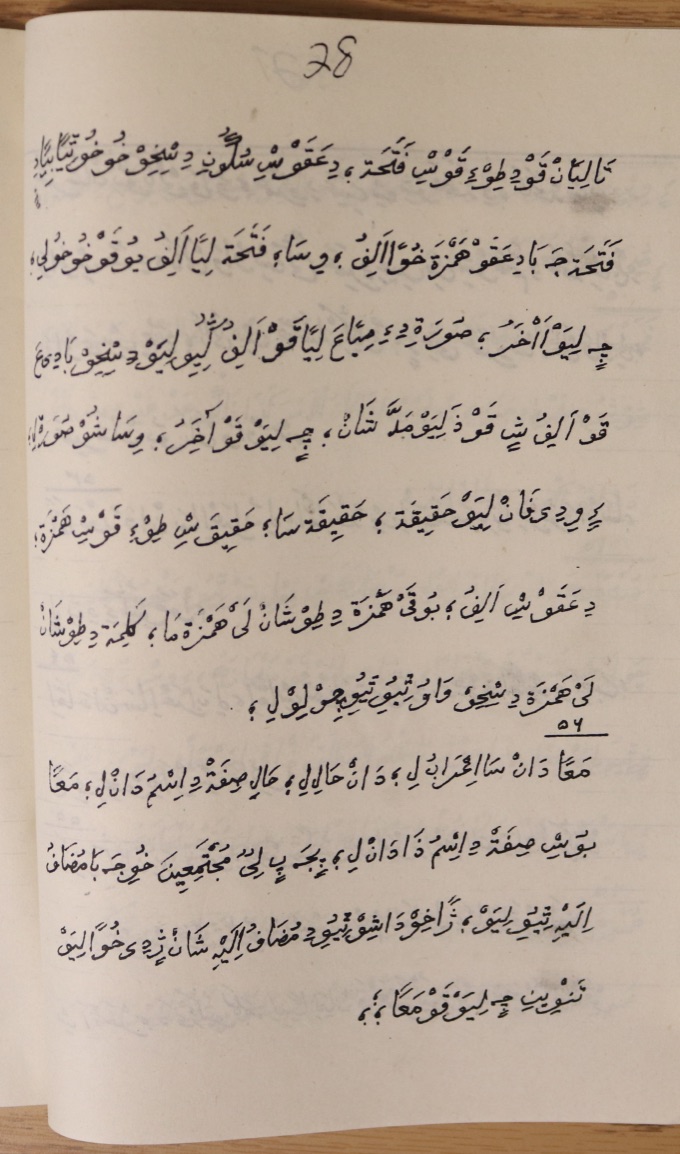 28
تَالِيَانْ قَوْدِ طِوْءِ قَوْسْ فَتْحَة ؛ دِ عَقَوْسْ سُكُونِ دِ شِخِوْ خُو خُو
فَتْحَة جَہ بَادِ عَقَوْ هَمْزَة خُوًا اَلِفُ ؛ وِسَا ؛ فَتْحَة لِيًا اَلِفُ يُوقَوْ خُو خُولِ ؛
جٍہ لِيَوْ اَاْخَرُ ؛ صُورَة دِءِ مِيَاعَ لِيًا قَوْ اَلِفُ لِيَوْ دِ شِخِوْ بَادِىْ عَ
قَوْ اَلِفُ شٍ قَوْ ذَ لِيَوْ مَدَّ شَانْ ؛ جٍہ لِيَوْ قَوْ آخَرُ ؛ وِسَا شُوْ صُورَة
ءٍ وِدِىْ فَانْ لِيَوْ حَقِيقَة ؛ حَقِيقَة سَا ؛ حَقِيقَ سْ طِوْءِ قَوْسْ هَمْزَة ؛
دِ عَقَوْسْ اَلِفُ ؛ بُوقَىْ هَمْزَة دِ طِوْ شَانْ لَىْ هَمْزَة مَا ؛ كَلِمَة دِ طِوْ شَانْ
لَىْ هَمْزَة دِ شِخِوْ وَاوُ تِيُوِ تِيُوِ جِوْ لِوْلِ ؛
٥٦
مَعًا دَانْ سَا اِعْرَابُ لِ ؛ دَانْ حَالِ لِ ؛ حَالِ صِفَةْ دِ اِسْمُ دَانْ لِ ؛ مَعًا
بُوسْ صِفَةْ دِ اِسْمُ ذَا دَانْ لِ ؛ پِجَہ پِ لِىْ مُجْتَمِعِينَ خُوِ جَہ بَا مُضَافُ
اِلَيْهِ تِيُوِ لِيَوْ ؛ ژَا خِوْ دَا شِوْ تِيُوِ دِ مُضَافُ اِلَيْهِ شَانْ ژِدِىْ خُوًا لِيَوْ
تَنْوِينِ جٍہ لِيَوْ قَوْ مَعًا ؛ ؛